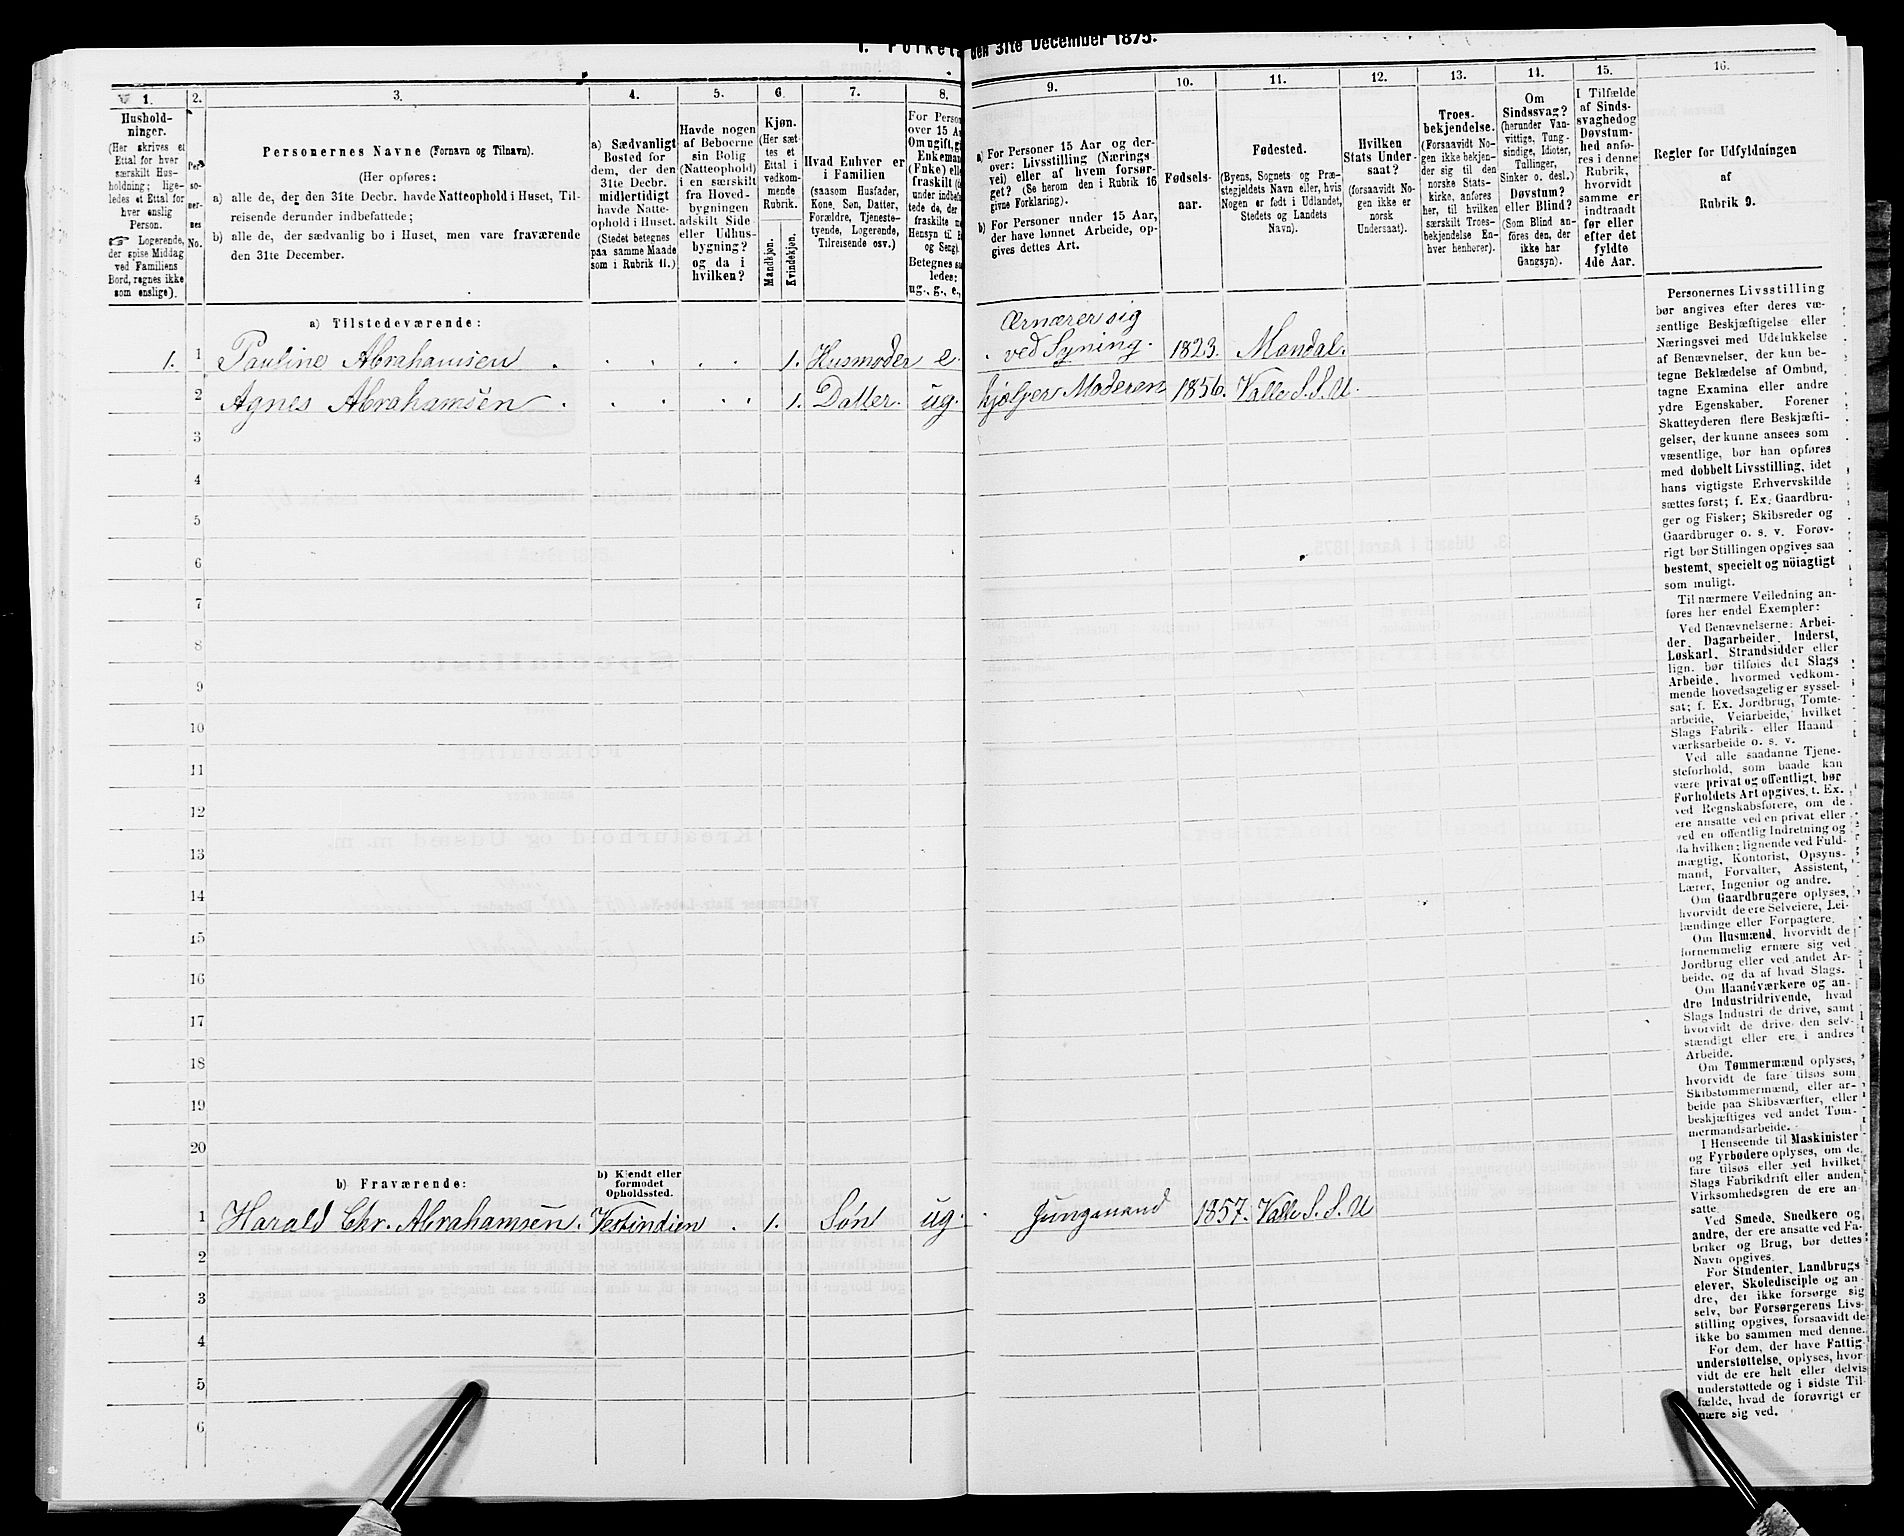 den 31te December 1875.
1.
2.
3.
4.
5.
6.
7.
8.
9.
10.
11.
12.
13.
14.
15.
16.
Hushold-
ninger.
(Her skrives et
Ettal for hver
særskilt Hus-
holdning; lige-
ledes et Ettal for
hver enslig
Person.
☞ Logerende,
der spise Middag
ved Familiens
Bord, regnes ikke
som enslige).
Per-
so-
ner-
nes
No.
Personernes Navne (Fornavn og Tilnavn).
(Her opføres:
a) alle de, der den 31te Decbr. havde Natteophold i Huset, Til-
reisende derunder indbefattede;
b) alle de, der sædvanlig bo i Huset, men vare fraværende
den 31te December.
a) Sædvanligt
Bosted for
dem, der den
31te Decbr.
midlertidigt
havde Natte-
ophold i Huset.
(Stedet betegnes
paa samme Maade
som i Rubrik 11.)
Havde nogen
af Beboerne
sin Bolig
(Natteophold)
i en særskilt
fra Hoved-
bygningen
adskilt Side-
eller Udhus-
bygning?
og da i
hvilken?
Kjøn.
(Her sæt-
tes et
Ettal i
vedkom-
mende
Rubrik.
Mandkjøn.
Kvindekjøn.
Hvad Enhver er
i Familien
(saasom Husfader,
Kone, Søn, Datter,
Forældre, Tjeneste-
tyende, Logerende,
Tilreisende osv.).
For Person
over 15 Aa
Om ugift, gi
Enkeman
(Enke) elle
fraskilt
under indbef
tede de, der
fraskilte
Hensyn til
og Seng).
Betegnes saa
ledes:
ug., g., e.,
a) For Personer 15 Aar og der-
over: Livsstilling (Nærings-
vei) eller af hvem forsør-
get? (Se herom den i Rubrik 16
givne Forklaring).
b) For Personer under 15 Aar,
der have lønnet Arbeide, op-
gives dettes Art.
Fødsels-
aar.
Fødested.
(Byens, Sognets og Præ-
stegjeldets Navn eller, hvis
Nogen er født i Udlandet,
Stedets og Landets
Navn).
Hvilken
Stats Under-
saat?
(forsaavidt No-
gen ikke er
norsk
Undersaat).
Troes-
bekjendelse.
(Forsaavidt No-
gen ikke bekjen-
der sig til den
norske Stats-
kirke, anfø-
res her, til hvilken
særskilt Troes-
bekjendelse En-
hver henhører).
Om
Sindssvag?
(herunder Van-
vittige, Tung-
sindige, Idioter,
Tullinger,
Sinker o. desl.)
Døvstum?
eller Blind?
(Som Blind an-
føres den, der
ikke har
Gangsyn).
I Tilfælde
af Sinds-
svaghed og
Døvstum-
hed anfø-
res i denne
Rubrik,
hvorvidt
samme er
indtraadt
før eller
efter det
fyldte
4de Aar.
Regler for Udfyldningen
af
Rubrik 9.
a) Tilstedeværende:
Ernærer sig
1. 1 Pauline Abrahamsen 1. Husmoder e. ved Syning. 1823. Mandal.
2 Agnes Abrahamsen 1. Datter. ug. hjælper Moderen 1856. Valle S. S. U.
3
4
5
6
7
8
9
10
11
12
13
14
15
16
17
18
19
20
b) Fraværende:
b) Kjendt eller
formodet
Opholdssted.
1 Harald Chr. Abrahamsen. Vestindien 1. Søn ug. Jungmand 1857. Valle S. S. U
2
3
4
5
6
Personernes Livsstilling
bør angives efter deres væ-
sentlige Beskjæftigelse eller
Næringsvei med Udelukkelse
af Benævnelser, der kun be-
tegne Beklædelse af Ombud,
tagne Examina eller andre
ydre Egenskaber. Forener
Skatteyderen flere Beskjæfti-
gelser, der kunne ansees som
væsentlige, bør han opføres
med dobbelt Livsstilling, idet
hans vigtigste Erhvervskilde
sættes først; f. Ex. Gaardbru-
ger og Fisker; Skibsreder og
Gaardbruger o. s. v. Forøv-
rigt bør Stillingen opgives saa
bestemt, specielt og nöiagtigt
som muligt.
Til nærmere Veiledning an-
føres her endel Exempler:
Ved Benævnelserne: Arbei-
der, Dagarbeider, Inderst,
Løskarl, Strandsidder eller
lign. bør tilføies det Slags
Arbeide, hvormed vedkom-
mende hovedsagelig er syssel-
sat; f. Ex. Jordbrug, Tomte-
arbeide, Veiarbeide, hvilket
Slags Fabrik- eller Haand
værksarbeide o. s. v.
Ved alle saadanne Tjene-
steforhold, som baade kan
være privat og offentligt, bør
Forholdets Art opgives, f. Ex.
ved Regnskabsførere, om de
ere ansatte ved en privat eller
ved en offentlig Indretning og
da hvilken; lignende ved Fuld-
mægtig, Kontorist, Opsyns-
mand, Forvalter, Assistent,
Lærer, Ingeniør og andre.
Om Gaardbrugere oplyses,
hvorvidt de ere Selveiere, Lei-
lændinge eller Forpagtere.
Om Husmænd, hvorvidt de
fornemmelig ernære sig ved
Jordbrug eller ved andet Ar-
beide, og da af hvad Slags.
Om Haandværkere og an-
dre Industridrivende, hvad
Slags Industri de drive, samt
hvorvidt de drive den selv-
stændigt eller ere i andres
Arbeide.
Om Tømmermænd oplyses,
hvorvidt de fare tilsøs som
Skibstømmermænd, eller ar-
beide paa Skibsværfter, eller
beskjæftiges ved andet Tøm-
mermandsarbeide.
I Henseende til Maskinister
og Fyrbødere oplyses, om de
fare tilsøs eller ved hvilket
Slags Fabrikdrift eller anden
Virksomhedsgren de ere an-
satte.
Ved Smede, Snedkere og
andre, der ere ansatte ved Fa-
briker og Brug, bør dettes
Navn opgives.
For Studenter, Landbrugs
elever, Skoledisciple og an-
dre, der ikke forsørge sig
selv, bør Forsørgerens Livs-
stilling opgives, forsaavidt de
ikke bo sammen med denne.
For dem, der have Fattig
understøttelse, oplyses, hvor
vidt de ere helt eller delvis
understøttede og i sidste Til-
fælde, hvad de forøvrigt er
nære sig ved.